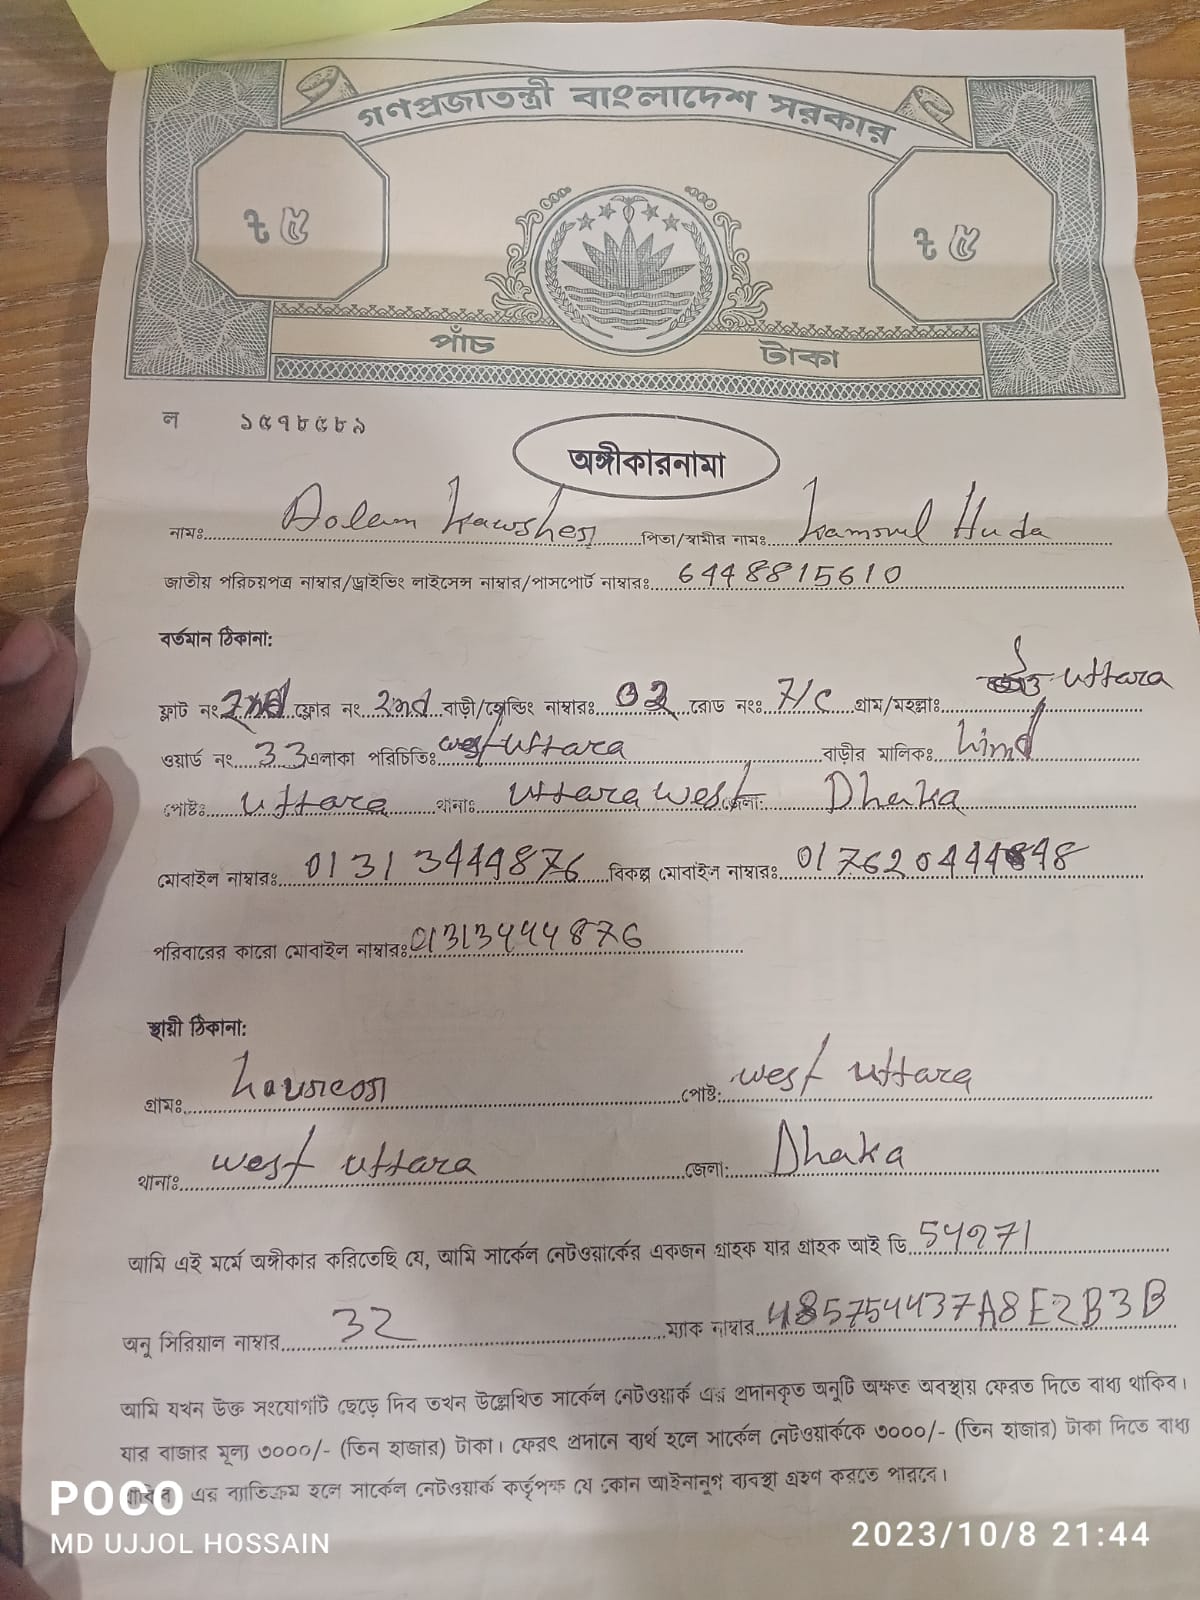 গণপ্রজাতন্ত্রী বাংলাদেশ সরকার
৳ ৫ ৳ ৫
পাঁচ টাকা
ল ১৫৭৮৫৮৯
অঙ্গীকারনামা
নামঃ Dolem Kawsher পিতা/স্বামীর নামঃ Kamrul Huda
জাতীয় পরিচয়পত্র নাম্বার/ড্রাইভিং লাইসেন্স নাম্বার/পাসপোর্ট নাম্বারঃ 6448815610
বর্তমান ঠিকানা:
ফ্লাট নং 2nd ফ্লোর নং 2nd বাড়ী/হোল্ডিং নাম্বারঃ রোড নংঃ 7/C গ্রাম/মহল্লাঃ uttara
ওয়ার্ড নং 33 এলাকা পরিচিতিঃ west uttara বাড়ীর মালিকঃ
পোষ্টঃ uttara থানাঃ uttara west জেলা: Dhaka
মোবাইল নাম্বারঃ 01313444876 বিকল্প মোবাইল নাম্বারঃ
পরিবারের কারো মোবাইল নাম্বারঃ 01313444876
স্থায়ী ঠিকানা:
গ্রামঃ পোষ্ট: west uttara
থানাঃ west uttara জেলা: Dhaka
আমি এই মর্মে অঙ্গীকার করিতেছি যে, আমি সার্কেল নেটওয়ার্কের একজন গ্রাহক যার গ্রাহক আই ডি
অনু সিরিয়াল নাম্বার 32 ম্যাক নাম্বার 485754437A8E2B3B
আমি যখন উক্ত সংযোগটি ছেড়ে দিব তখন উল্লেখিত সার্কেল নেটওয়ার্ক এর প্রদানকৃত অনুটি অক্ষত অবস্থায় ফেরত দিতে বাধ্য থাকিব।
যার বাজার মূল্য ৩০০০/- (তিন হাজার) টাকা। ফেরৎ প্রদানে ব্যর্থ হলে সার্কেল নেটওয়ার্ককে ৩০০০/- (তিন হাজার) টাকা দিতে বাধ্য
থাকিব। এর ব্যতিক্রম হলে সার্কেল নেটওয়ার্ক কর্তৃপক্ষ যে কোন আইনানুগ ব্যবস্থা গ্রহণ করতে পারবে।
POCO
MD UJJOL HOSSAIN
2023/10/8 21:44